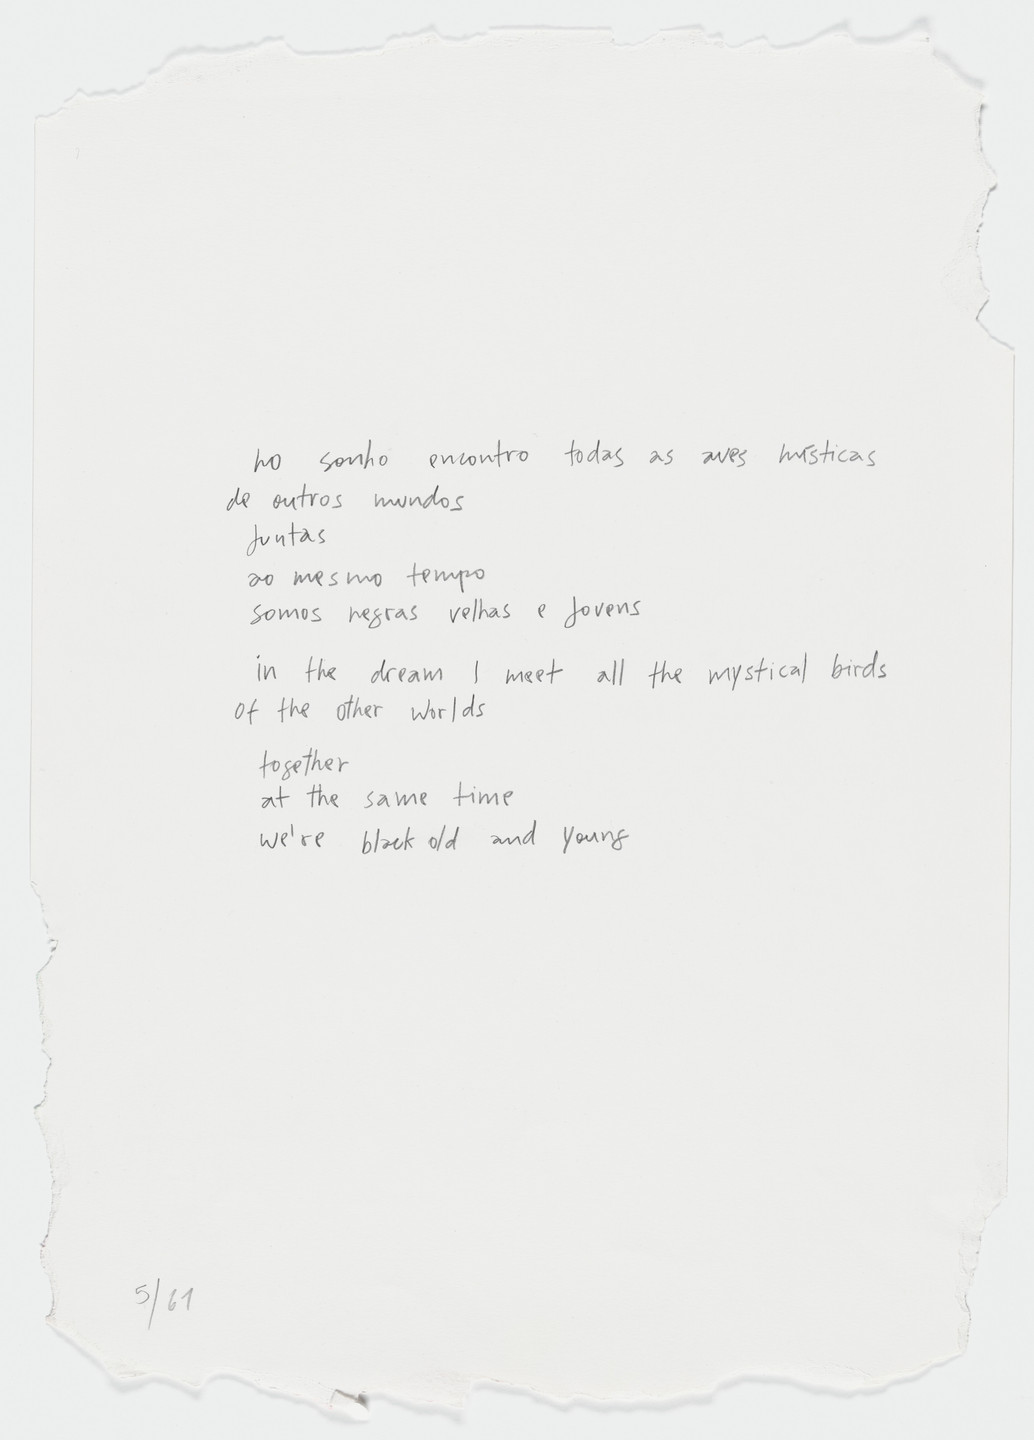 no sonho encontro todas as aves místicas
de outros mundos
juntas
ao mesmo tempo
somos negras velhas e jovens
in the dream I meet all the mystical birds
of the other worlds
together
at the same time
we're black old and young
5/61